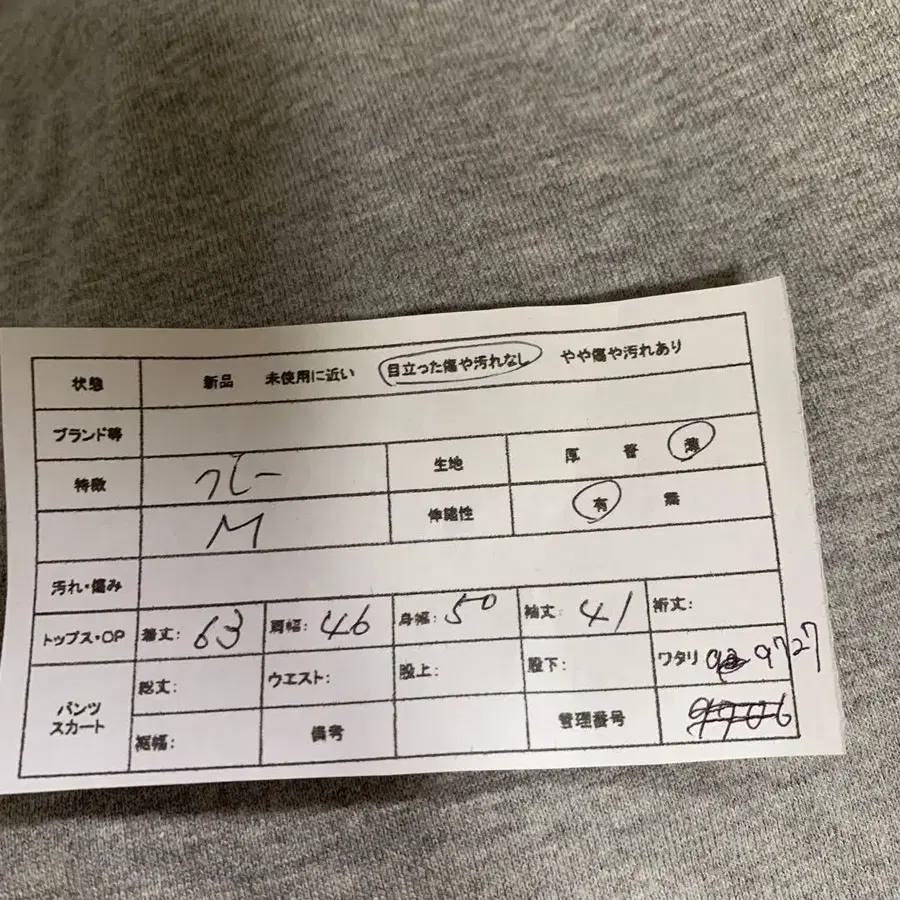 状態 新品 未使用に近い 目立った傷や汚れなし やや傷や汚れあり
ブランド等
特徴 グレー 生地 厚 普 薄
M 伸縮性 有 無
汚れ・傷み
トップス・OP 着丈: 63 肩幅: 46 身幅: 50 袖丈: 41 裄丈:
パンツ スカート 総丈: ウエスト: 股上: 股下: ワタリ 9727
裾幅: 備考 管理番号 9706